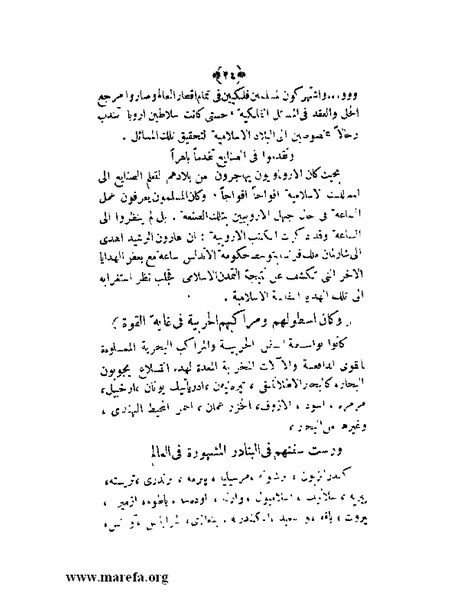 ﴿٢٤﴾
٩٠٠ ... واشتهر كون مسلمين فلكيين فى تمام اقطار العالم وصاروا مرجع
الحل والعقد فى المسائل الفلكية حتى كانت سلاطين اروپا تنتدب
رجالاً مخصوصين الى البلاد الاسلامية لتحقيق تلك المسائل .
وتقدموا فى الصنايع تقدماً باهراً
بحيث كان الاروپاويون يهاجرون من بلادهم لتعلم الصنايع الى
الاسلامية افواجاً افواجاً وكان المسلمون يعرفون عمل
الساعة فى حال جهل الاروبيين بتلك الصنعة . بل لم ينظروا الى
الساعة وقد ذكرت الكتب الاروبية : ان هارون الرشيد اهدى
الى شارلمان ملك حكومة الاندلس ساعة مع بعض الهدايا
الاخر التى تكشف عن نتيجة التمدن الاسلامى فجلب نظر استغرابه
الى تلك الهدية الاسلامية .
وكان اسطولهم ومراكبهم الحربية فى غاية القوة
كانوا بواسطة الحربية والمراكب البحرية المملوءة
بالقوى الدافعة والآلات المعدة لهدم القلاع يجوبون
البحار كالبحر الاطلانتقى ، ادرياتيك يونان ،
مرمره ، اسود ، الازوف ، الخزر عمان ، احمر المحيط الهندى ،
وغيرها من البحار ،
ورست سفنهم فى البنادر المشهورة فى العالم
مرسيليا ، برندزى ، تريسته ،
پيريه ، سلانيك ، اسلامبول ، وارنه ، اودسا ، باطوم ، ازمير ،
بيروت ، يافه ، پور سعيد ، اسكندريه ، بنغازى ، طرابلس ، تونس ،
www.marefa.org